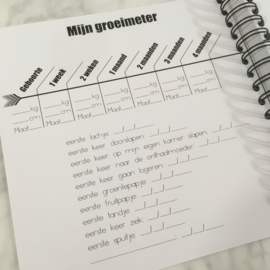 Mijn groeimeter
Geboorte 1 week 2 weken 1 maand 2 maanden 3 maanden 4 maanden
___kg ___kg ___kg ___kg ___kg ___kg ___kg
___cm ___cm ___cm ___cm ___cm ___cm ___cm
Maat___ Maat___ Maat___ Maat___ Maat___ Maat___ Maat___
eerste lachje: __/__/__
eerste keer doorslapen: __/__/__
eerste keer op mijn eigen kamer slapen: __/__/__
eerste keer naar de onthaalmoeder: __/__/__
eerste keer gaan logeren: __/__/__
eerste groentepapje: __/__/__
eerste fruitpapje: __/__/__
eerste tandje: __/__/__
eerste keer ziek: __/__/__
eerste spuitje: __/__/__
: __/__/__